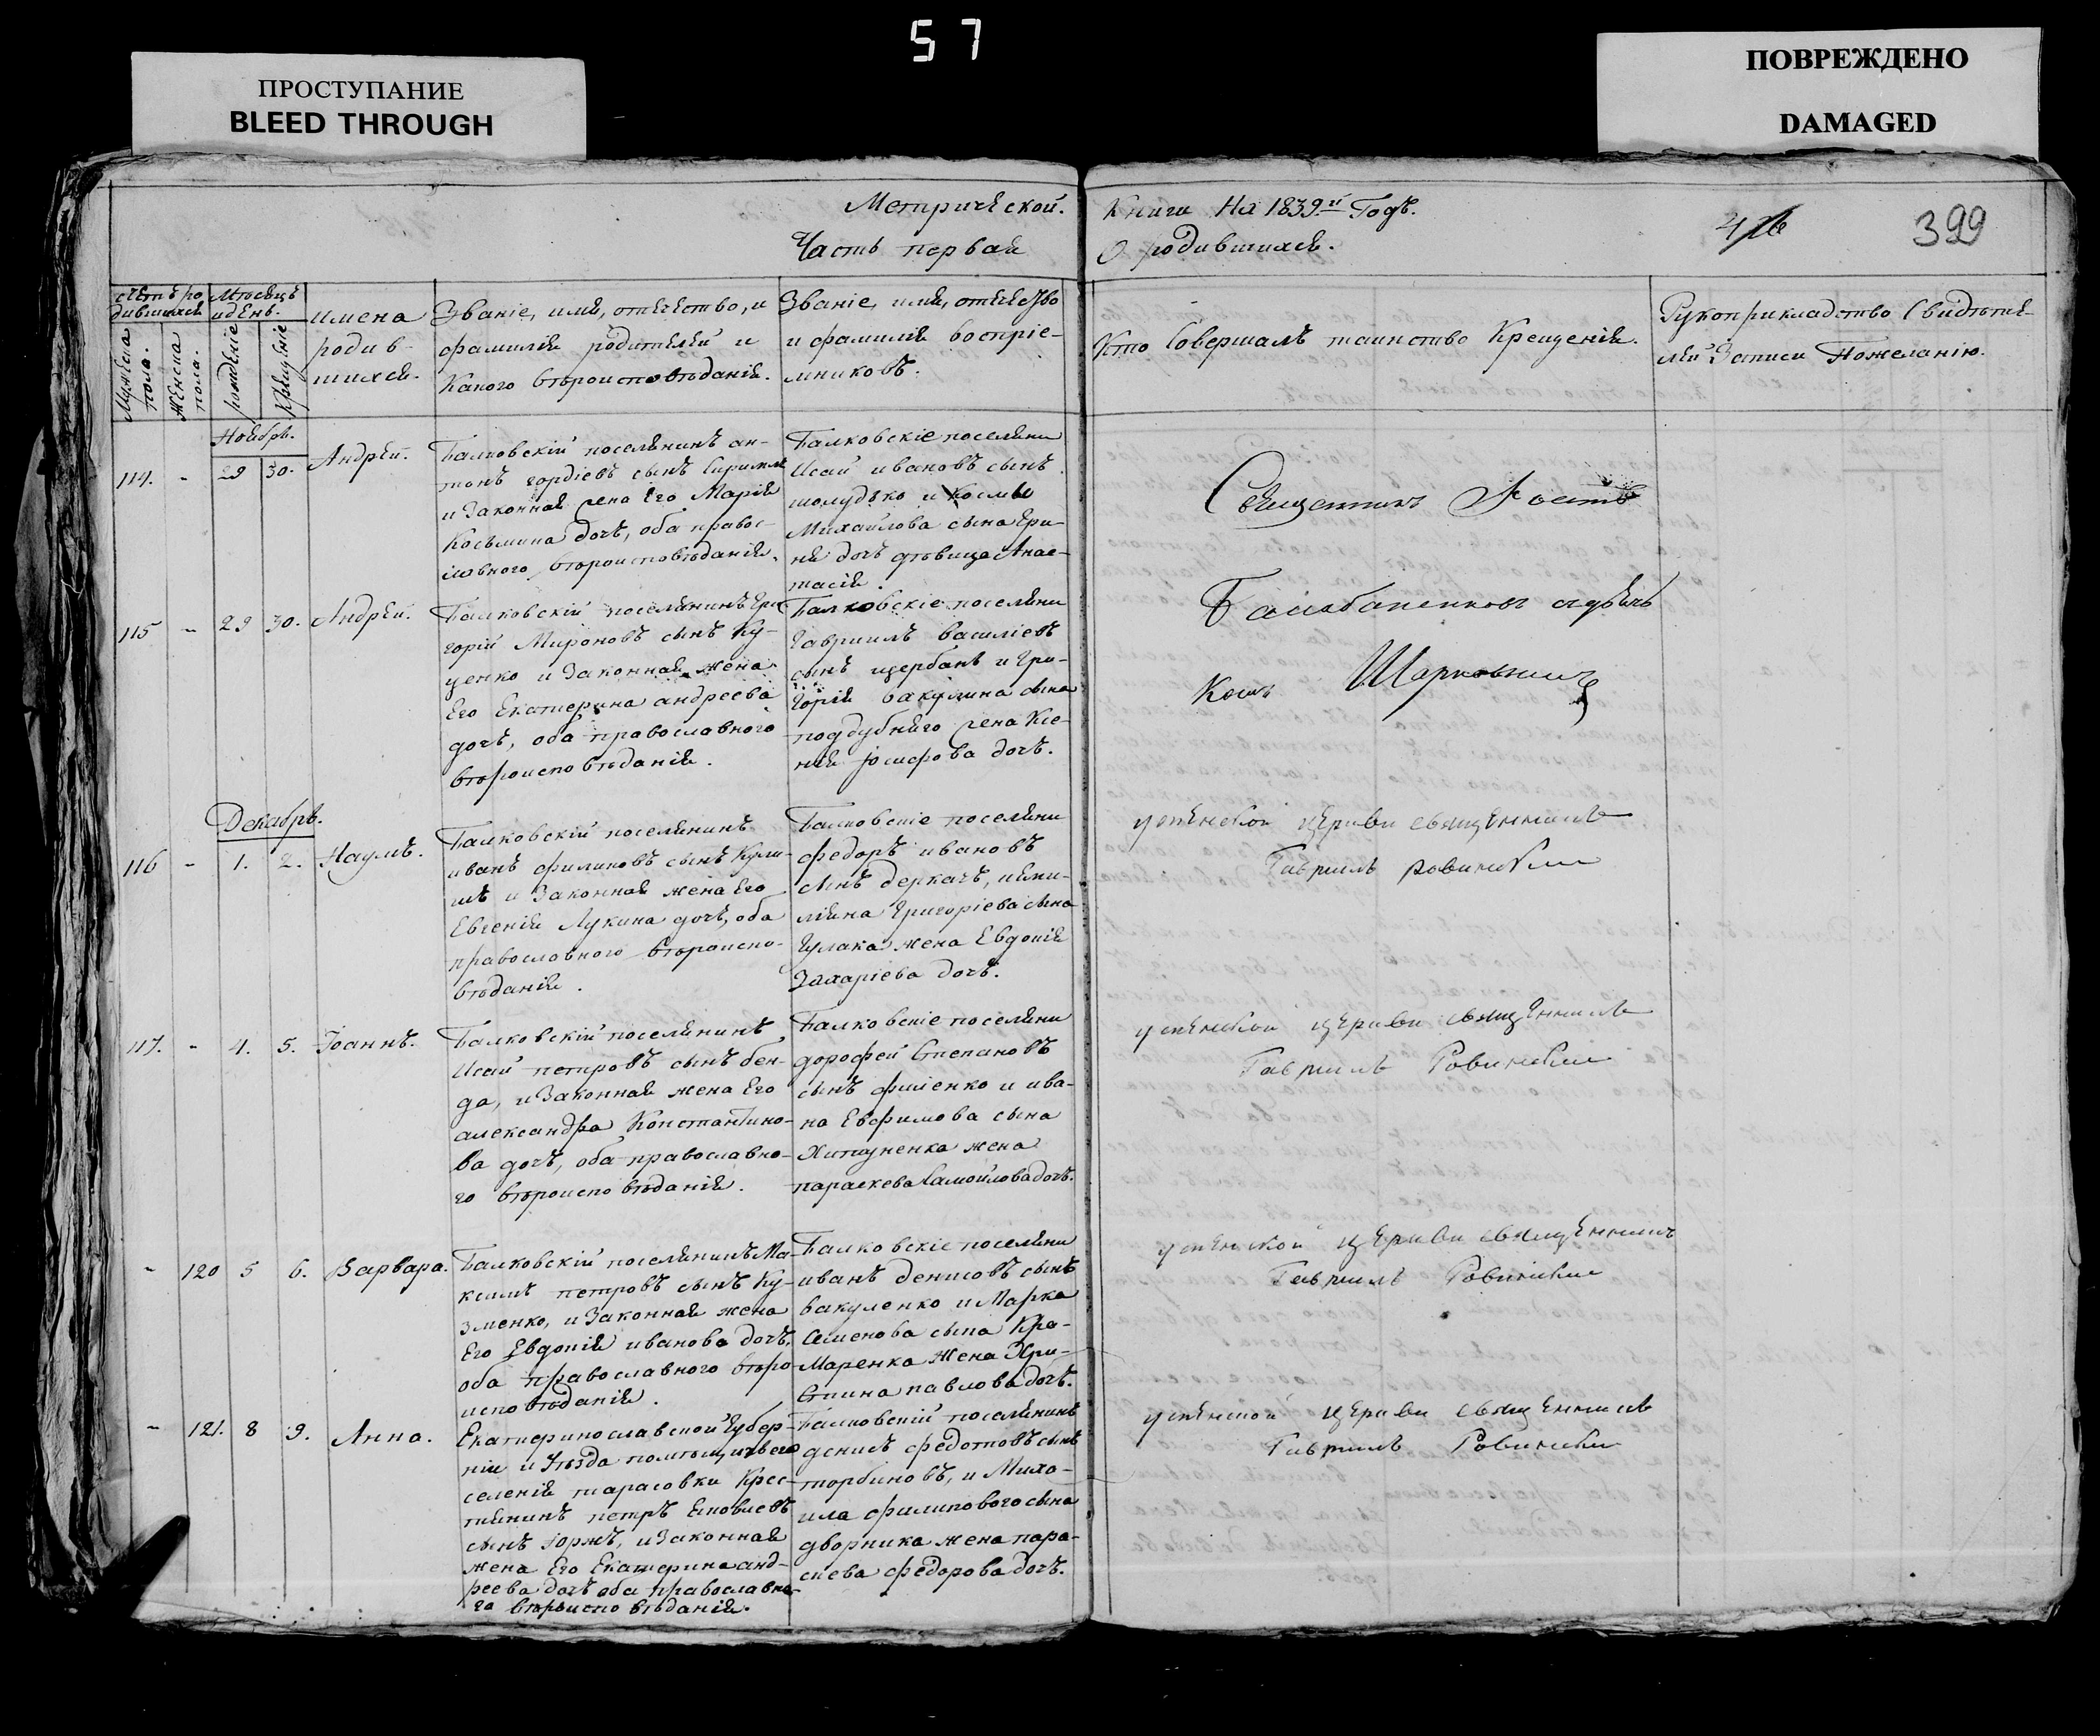 57
ПРОСТУПАНИЕ
BLEED THROUGH
ПОВРЕЖДЕНО
DAMAGED
Метрической. Книги На 1839.й Годъ.
399
Часть первая О родившихся.
счетъ ро
дившихся
Мужеска
пола.
женска
пола.
Мѣсяцъ
и день.
рожденіе
крещеніе
имена
родив-
шихся.
Званіе, имя, отчество, и
фамилія родителей и
какого вѣроисповѣданія.
Званіе, имя, отчество
и фамилія воспріе-
мниковъ.
Кто Совершалъ таинство Крещенія.
Рукоприкладство Свидѣте-
лей Записи Пожеланію.
Ноября.
114. - 29 30. Андрей.
Балковскій поселянинъ ан-
тонъ гордіевъ сынъ
и Законная жена Его Марія
Косьмина дочь, оба право-
славного вѣроисповѣданія.
Балковскіе поселяни
Исай ивановъ сынъ
шолудько и Космы
Михайлова сына
дочь дѣвица Анас-
тасія.
Священникъ
115 - 29 30. Андрей.
Балковскій поселянинъ Гри
горій Мироновъ сынъ Ку-
ценко и Законная жена
Его Екатерина андреева
дочь, оба православного
вѣроисповѣданія.
Балковскіе поселяни
Гавриилъ василіевъ
сынъ щербань и Гри-
горія вакулина сына
поддубняго жена Ксе-
нія Іосифова дочь.
Декабря.
116 - 1. 2. Наумъ.
Балковскій поселянинъ
иванъ филиповъ сынъ
и Законная жена Его
Евгенія Лукина дочь, оба
православного вѣроиспо-
вѣданія.
Балковскіе поселяни
федоръ ивановъ
сынъ деркачъ, и Еми-
ліяна Григоріева сына
Гулака жена Евдокія
Захаріева дочь.
успенской церкви священникъ
Гавриилъ Ровинскій
117. - 4. 5. Іоаннъ.
Балковскій поселянинъ
Исай петровъ сынъ бен-
да, и Законная жена Его
александра Константино-
ва дочь, оба православно-
го вѣроисповѣданія.
Балковскіе поселяни
дорофей Степановъ
сынъ филенко и ива-
на Евфимова сына
жена
параскева Самойлова дочь.
успенской церкви священникъ
Гавриилъ Ровинскій
- 120 5 6. Варвара.
Балковскій поселянинъ Ма-
ксимъ петровъ сынъ Ку-
зменко, и Законная жена
Его Евдокія иванова дочь,
оба православного вѣро
исповѣданія.
Балковскіе поселяни
иванъ денисовъ сынъ
вакуленко и Марка
Семенова сына Кра-
маренка Жена Хри-
стина павлова дочь.
успенской церкви священникъ
Гавриилъ Ровинскій
- 121. 8 9. Анна.
Екатеринославской Губер-
ніи и Уѣзда помѣщичьего
селенія тарасовки Крес-
тянинъ петръ яковлевъ
сынъ и Законная
жена Его Екатерина анд-
реева дочь оба православно-
го вѣроисповѣданія.
Балковскій поселянинъ
денисъ федотовъ сынъ
торбиновъ, и Миха-
ила филипового сына
дворника жена пара-
скева федорова дочь.
успенской церкви священникъ
Гавриилъ Ровинскій